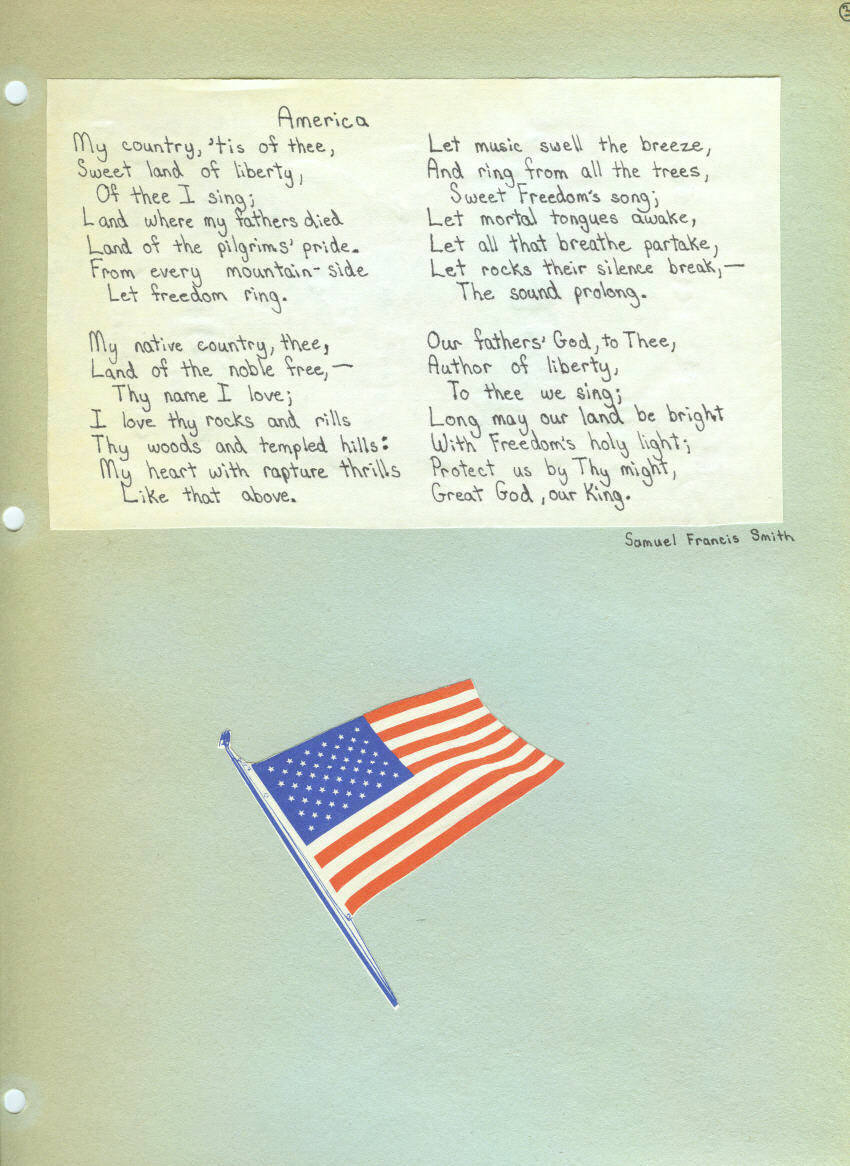 America
My country, 'tis of thee,
Sweet land of liberty,
Of thee I sing;
Land where my fathers died
Land of the pilgrims' pride.
From every mountain-side
Let freedom ring.
My native country, thee,
Land of the noble free,—
Thy name I love;
I love thy rocks and rills
Thy woods and templed hills:
My heart with rapture thrills
Like that above.
Let music swell the breeze,
And ring from all the trees,
Sweet Freedom's song;
Let mortal tongues awake,
Let all that breathe partake,
Let rocks their silence break,—
The sound prolong.
Our fathers' God, to Thee,
Author of liberty,
To thee we sing;
Long may our land be bright
With Freedom's holy light;
Protect us by Thy might,
Great God, our King.
Samuel Francis Smith